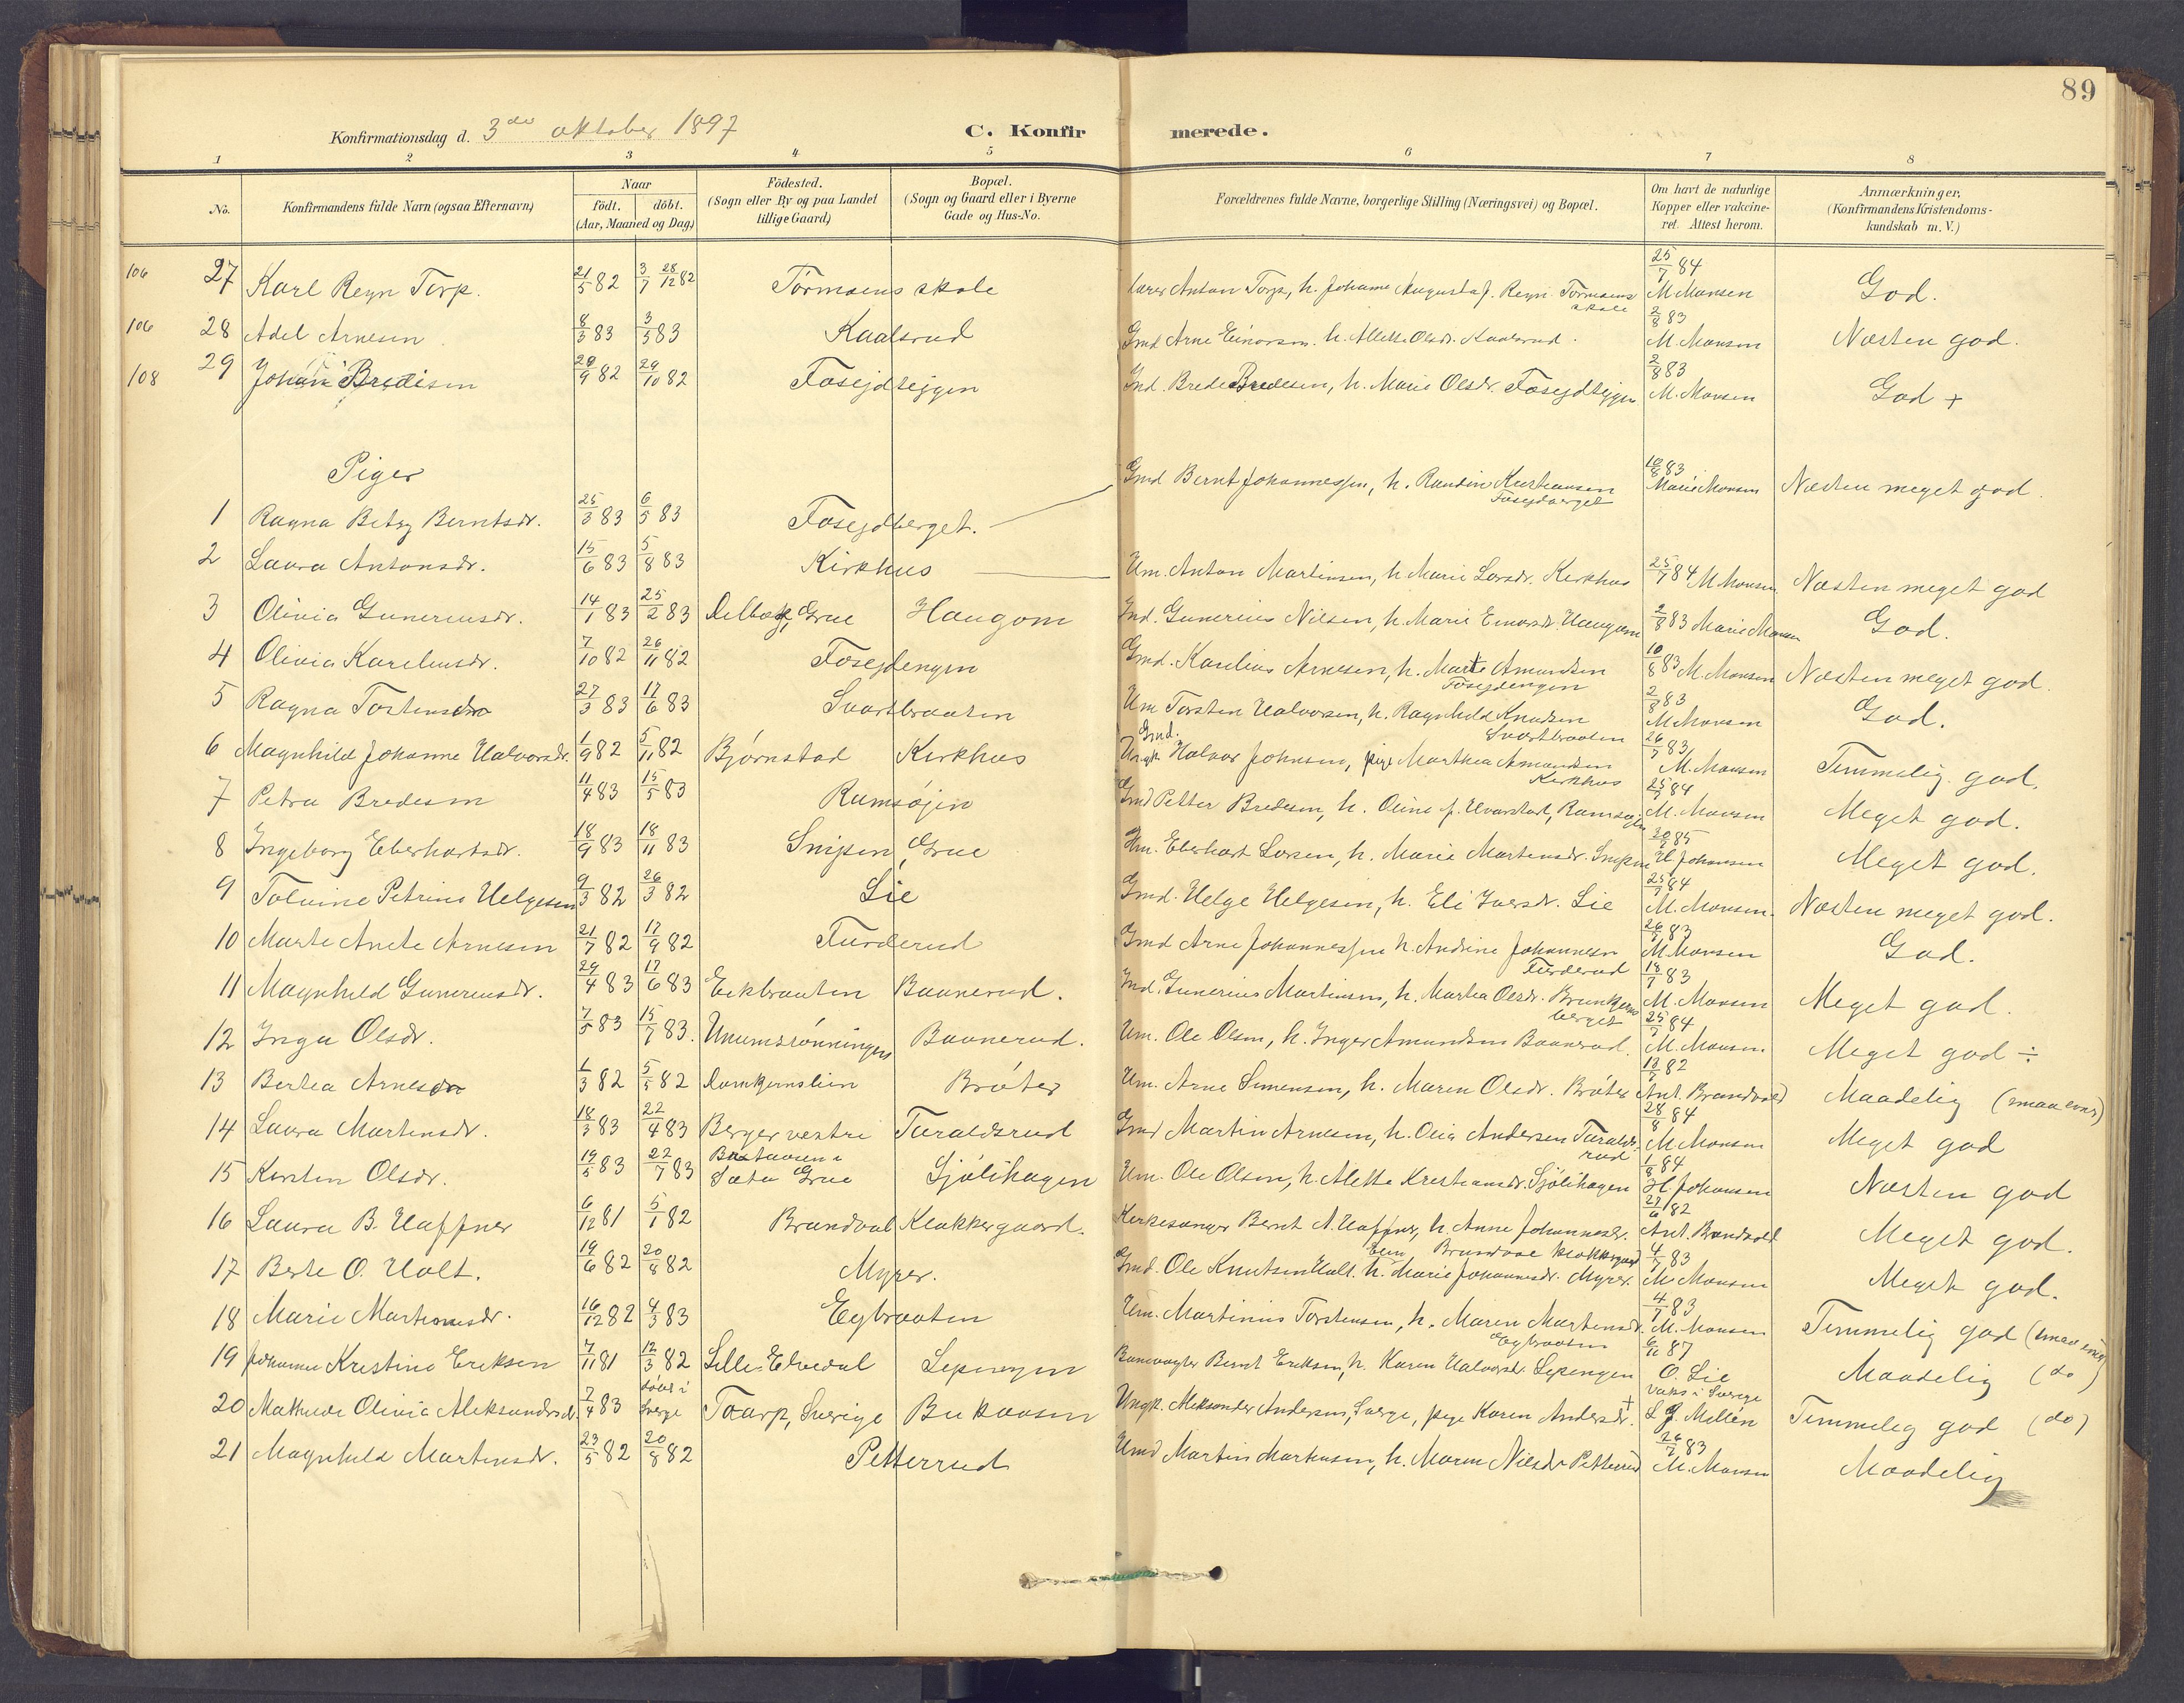 89
Konfirmationsdag d. 3die oktober 1897 C. Konfirmerede.
1 2 3 4 5 6 7 8
No. Konfirmandens fulde Navn (ogsaa Efternavn) Naar födt. döbt. (Aar, Maaned og Dag) Födested. (Sogn eller By og paa Landet tillige Gaard) Bopæl. (Sogn og Gaard eller i Byerne Gade og Hus-No. Forældrenes fulde Navne, borgerlige Stilling (Næringsvei) og Bopæl. Om havt de naturlige Kopper eller vakcineret. Attest herom. Anmærkninger, (Konfirmandens Kristendomskundskab m.V.)
106 27 Karl Reyn Torp. 21/5 82 3/7 28/12 82 Tormoens skole Anton Torp, h. Johanne Augusta f. Reyn Tormoens skole 25/7 84 M Monsen God.
106 28 Adel Arnesen 8/3 83 3/5 83 Kaalsrud Gmd Arne Einarsen h. Alette Olsdr. Kaalsrud. 2/8 83 M. Monsen Næsten god.
108 29 Johan Bredesen 28/9 82 29/10 82 Fosejdeiggen Ind. Brede Bredesen, h. Marie Olsdr. Fosejdeiggen 2/8 83 M. Monsen God +
Piger
1 Ragna Betzy Berntsdr. 25/3 83 6/5 83 Fosejdberget. Gmd Bernt Johannessen, h. Randine Fosejdberget 10/8 83 Marie Monsen Næsten meget god.
2 Laura Antonsdr. 15/6 83 5/8 83 Kirkhus Hm. Anton Martinsen, h. Marie Larsdr. Kirkhus 25/7 84 M Monsen Næsten meget god
3 Olivia Gunereusdr. 14/1 83 25/2 83 Grue Haugom Ind. Gunerius Nilsen, h. Marie Einarsdr. Haugom 2/8 83 Marie Monsen God.
4 Olivia Kareliusdr. 7/10 82 26/11 82 Fosejdengen Gmd. Karelius Arnesen, h. Marte Amundsen Fosejdengen 10/8 83 M. Monsen Næsten meget god.
5 Ragna Torstensdr 27/3 83 17/6 83 Svartbraaten Hm Torsten Halvorsen, h. Ragnhild Knudsen Svartbraaten 2/8 83 M Monsen God.
6 Magnhild Johanne Halvorsdr. 1/9 82 5/11 82 Bjørnstad Kirkhus Gmd. Ungk. Halvor Johnsen, pige Marthea Amundsen Kirkhus 26/7 83 M. Monsen Temmelig god.
7 Petra Bredesen 11/4 83 15/5 83 Ramsøjen Gmd Petter Bredesen, h. Oline f. Hvarstad, Ramsøjen 25/7 84 M. Monsen Meget god.
8 Ingeborg Eberhartsdr. 18/9 83 18/11 83 Snipen, Grue Hm. Eberhart Larsen, h. Marie Martensdr. Snipen 85 H Johansen Meget god.
9 Tolvine Petrine Helgesen 9/3 82 26/3 82 Lie Gmd. Helge Helgesen, h. Eli Iversdr. Lie 25/7 84 M. Monsen. Næsten meget god.
10 Marte Anete Arnesen 21/7 82 17/9 82 Furderud Gmd Arne Johannessen h. Andrine Johannesen Furderud 26/7 83 M Monsen God.
11 Magnhild Gunereusdr. 29/4 83 17/6 83 Eekbraaten Baanerud. Ind. Gunerius Martinsen, h. Martea Olsdr. berget 18/7 83 M. Monsen Meget god.
12 Inga Olsdr. 7/5 83 15/7 83. Baanerud. Hm. Ole Olsen, h. Inger Amundsen Baanerud. 25/7 84 M. Monsen Meget god ÷
13 Bertea Arnesdr 1/3 82 5/5 82 Brøter Hm. Arne Simensen, h. Maren Olsdr. Brøter 82 Ant. Brandvold Maadelig (smaa evner)
14 Laura Martensdr. 18/3 83 22/4 83 Berger vestre Turaldsrud Gmd Martin Arnesen, h. Olia Andersen Turaldsrud 28/8 84 M Monsen Meget god
15 Kersten Olsdr. 19/5 83 22/7 83 Grue Sjølihagen Hm. Ole Olsen, h. Alette Krestiansdr. Sjølihagen 1/8 84 H. Johansen Næsten god
16 Laura B. Haffner 6/12 81 5/1 82 Brandval Klokkergaard. Kirkesanger Bernt A. Haffner, h. Anne Johannesdr. Brandval Klokkergaard 82 Ant. Brandvold Meget god.
17 Berte O. Holt. 19/6 82 20/8 82 Myrer. Gmd. Ole Knutsen Holt. h. Marie Johannesdr. Myrer. 4/7 83 M Monsen Meget god.
18 Marie Martinusdr. 16/12 82 4/3 83 Eybraaten Hm. Martinius Torstensen, h. Maren Martensdr. Eybraaten 4/7 83 M. Monsen Temmelig god (smaa evner)
19 Johanne Kristine Eriksen 7/11 81 12/3 82 Lille Elvedal Lepengen Banevogter Bernt Eriksen, h. Karen Halvorsdr. Lepengen 87 O. Lie Maadelig (do)
20 Olivia Aleksandersd. 7/4 83 døbt i Sverge Toarp, Sverige Ungk. Aleksander Andersen, Sverge, pige Karen Andersdr. + vaks i Sverige L. J. Mellén Temmelig god (do)
21 Magnhild Martensdr. 23/5 82 20/8 82 Petterrud Hmd Martin Martensen, h. Maren Nilsdr Petterrud 26/7 83 M. Monsen Maadelig